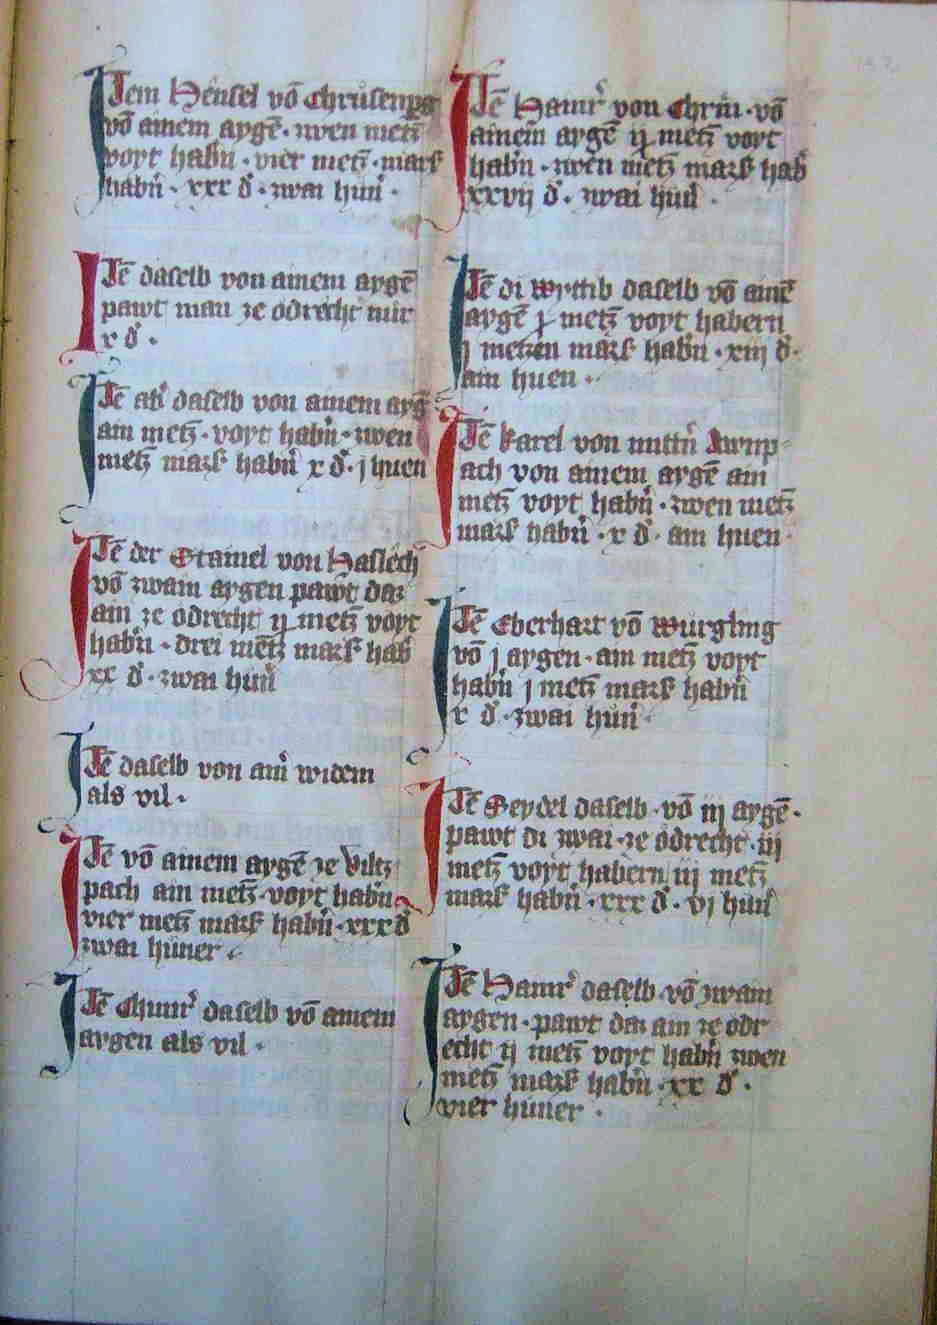 Item Hensel võ Chrusenpg
võ ainem aygẽ · zwen metz̃
voyt habñ · vier metz̃ · mark
habñ · xxx d̃ · zwai hun̄ ·
Itẽ daselb von ainem aygẽ
pawt man ze ödrecht nur
x d̃ ·
Itẽ ab̃ daselb von ainem ayg̃
ain metz̃ · voyt habñ · zwen
metz̃ mark habñ x d̃ · j huen
Itẽ der Stainel von Haslech
võ zwain aygen pawt daz
ain ze ödrecht ij metz̃ voyt
habñ · drei metz̃ mark hab̃
xx d̃ · zwai hun̄
Itẽ daselb von ain̄ widem
als vil ·
Itẽ võ ainem aygẽ ze viltz
pach ain metz̃ · voyt habñ
vier metz̃ mark habñ · xxx d̃
zwai hüner ·
Itẽ Chunr̃ daselb võ ainem
aygen als vil ·
Itẽ Hainr̃ von · võ
ainem aygẽ ij metz̃ voyt
habñ · zwen metz̃ mark hab̃
xxvij d̃ · zwai hun̄ ·
Itẽ di daselb võ ainẽ
aygẽ j metz̃ voyt habern
j metzen mark habñ · xiij d̃ ·
ain huen ·
Itẽ karel von nittñ Awrnp
ach von ainem aygẽ ain
metz̃ voyt habñ · zwen metz̃
mark habñ · x d̃ · ain huen ·
Itẽ Eberhart võ wurgling
võ j aygen · ain metz̃ voyt
habñ j metz̃ mark habñ
x d̃ · zwai hün̄ ·
Itẽ Seydel daselb · võ iij aygẽ ·
pawt di zwai · ze ödrecht · iij
metz̃ voyt habern iij metz̃
mark habñ · xxx d̃ · vj hun̄
Itẽ Hainr̃ daselb · võ zwain
aygen · pawt daz ain ze ödr
echt ij metz̃ voyt habñ zwen
metz̃ mark habñ · xx d̃ ·
vier hüner ·